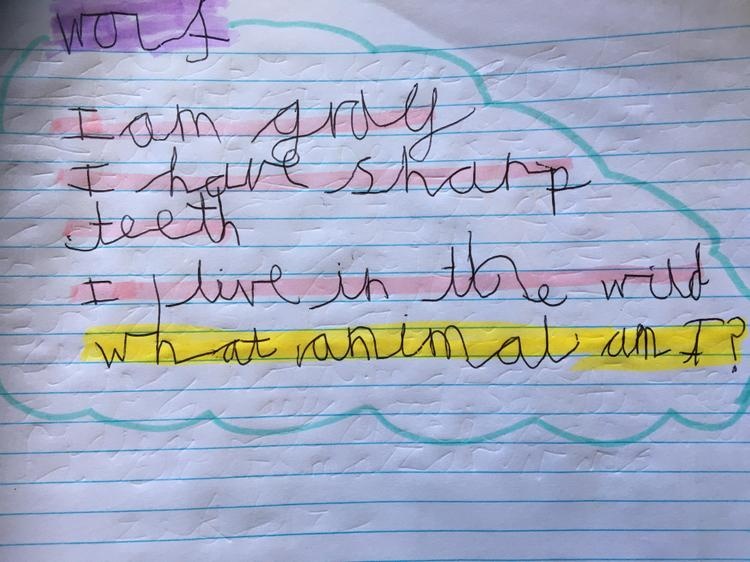 wolf
I am gray
I have sharp
teeth
I live in the wild
what animal am I?